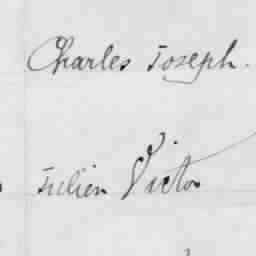 Charles Joseph.
Julien Victor